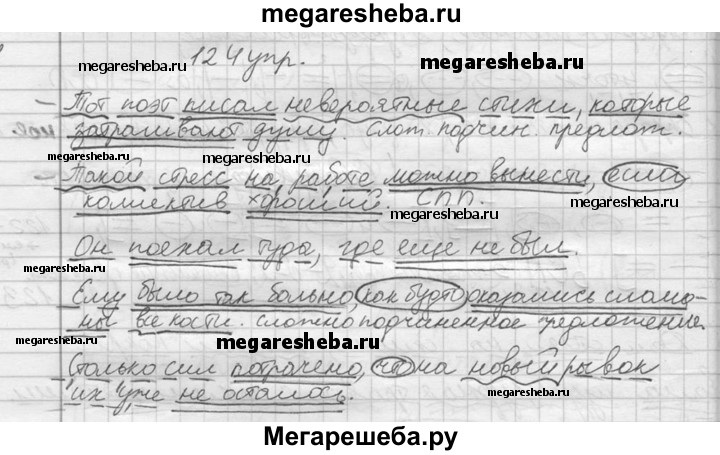 megaresheba.ru
124 упр.
megaresheba.ru
megaresheba.ru
- Тот поэт писал невероятные стихи, которые
затрагивают душу. Слож. подчин. предлож.
megaresheba.ru
- Такой стресс на работе можно вынести, если
megaresheba.ru
коллектив хороший. СПП.
megaresheba.ru
Он поехал туда, где еще не был.
megaresheba.ru
Ему было так больно, как будто оказались слома-
ны все кости. Сложноподчиненное предложение.
megaresheba.ru
Столько сил потрачено, что на новый рывок
megaresheba.ru
их уже не осталось.
Мегарешеба.ру